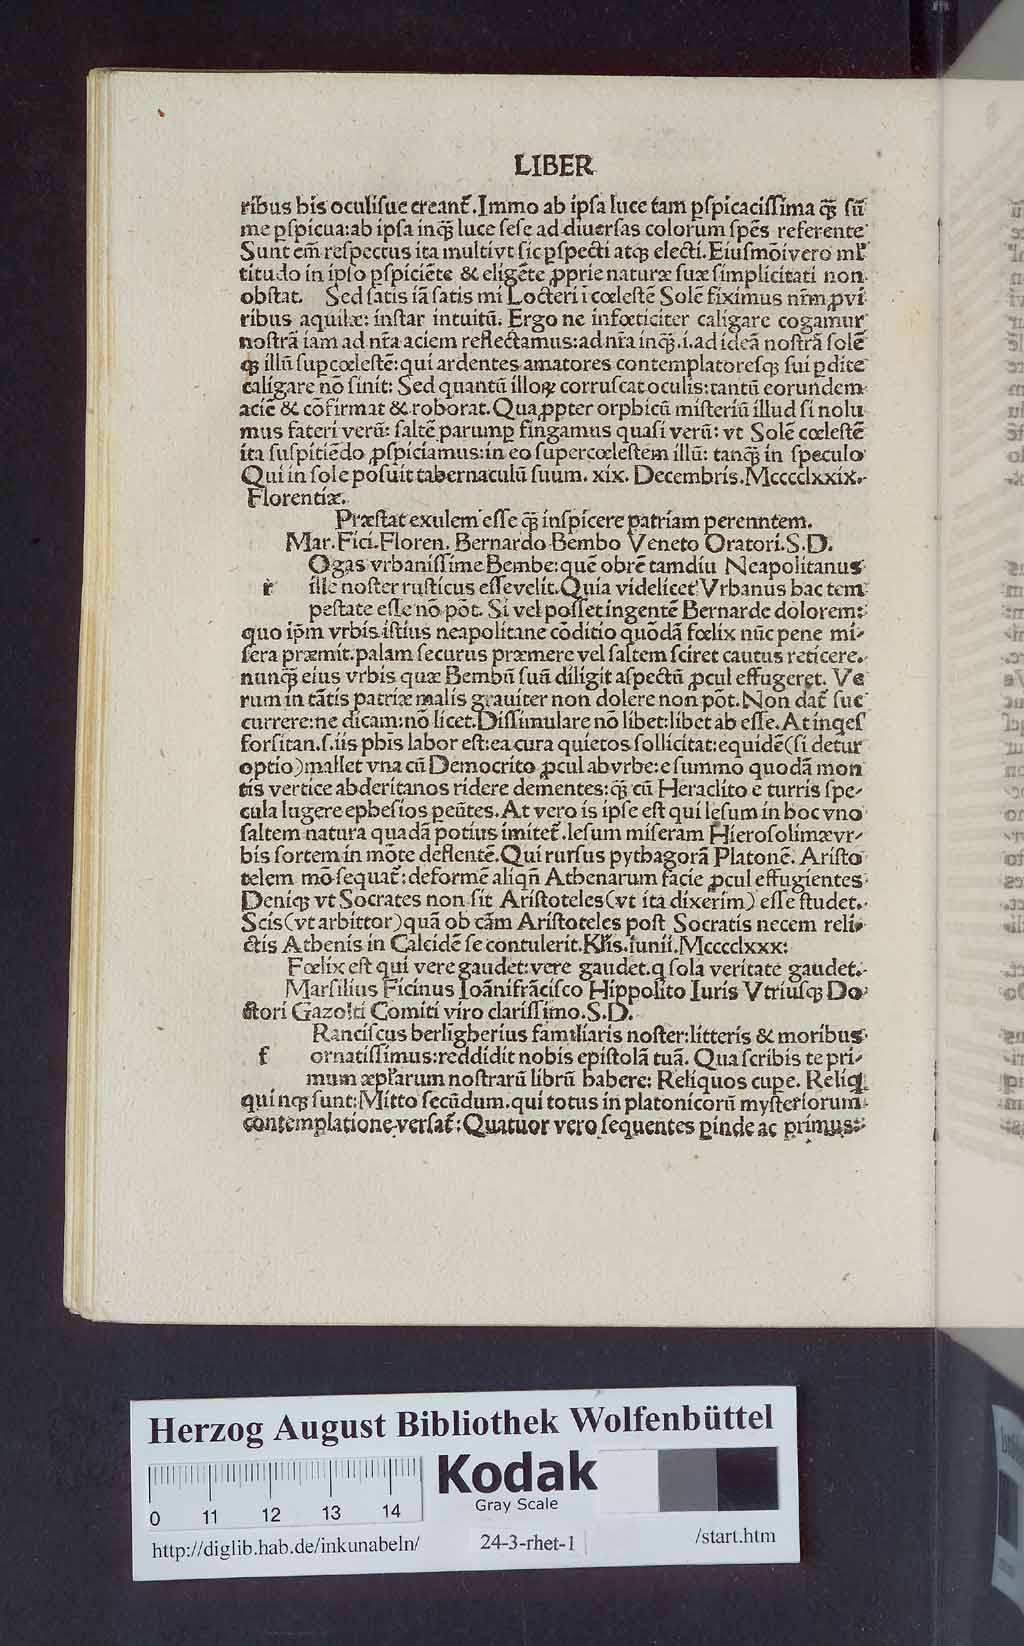 LIBER
ribus his oculisue creant̃. Immo ab ipsa luce tam ꝑspicacissima q̃ꝫ sũ
me ꝑspicua: ab ipsa inq̃ꝫ luce sese ad diuersas colorum spẽs referente
Sunt em̃ respectus ita multi vt sic ꝓspecti atqꝫ electi. Eiusmõi vero ml̃
titudo in ipso ꝑspiciẽte & eligẽte ꝓprie naturæ suæ simplicitati non
obstat. Sed satis iã satis mi Locteri i cœlestẽ Solẽ fiximus nr̃m ꝓ vi
ribus aquilæ: instar intuitũ. Ergo ne infœticiter caligare cogamur
nostrã iam ad nr̃a aciem reflectamus: ad nr̃a inq̃ꝫ .i. ad ideã nostrã solẽ
qꝫ illũ supcœlestẽ: qui ardentes amatores contemplatoresqꝫ sui ꝑdite
caligare nõ sinit: Sed quantũ illoꝝ corruscat oculis: tantũ eorundem
aciẽ & cõfirmat & roborat. Qua ꝓpter orphicũ misteriũ illud si nolu
mus fateri verũ: saltẽ parumꝑ fingamus quasi verũ: vt Solẽ cœlestẽ
ita suspitiẽdo ꝓspiciamus: in eo supercœlestem illũ: tanq̃ꝫ in speculo
Qui in sole posuit tabernaculũ suum. xix. Decembris. Mcccclxxix.
Florentiæ.
Præstat exulem esse q̃ꝫ inspicere patriam perenntem.
Mar. Fici. Floren. Bernardo Bembo Veneto Oratori. S. D.
Ogas vrbanissime Bembe: quẽ obrẽ tamdiu Neapolitanus
r ille noster rusticus esse velit. Quia videlicet Vrbanus hac tem
pestate esse nõ põt. Si vel posset ingentẽ Bernarde dolorem:
quo ip̃m vrbis istius neapolitane cõditio quõdã fœlix nũc pene mi-
sera præmit. palam securus præmere vel saltem sciret cautus reticere.
nunq̃ꝫ eius vrbis quæ Bembũ suũ diligit aspectũ ꝓcul effugeret. Ve
rum in tãtis patriæ malis grauiter non dolere non põt. Non dat̃ suc
currere: ne dicam: nõ licet. Dissimulare nõ libet: libet ab esse. At inqes
forsitan. s. iis phĩs labor est: ea cura quietos sollicitat: equidẽ (si detur
optio) mallet vna cũ Democrito ꝓcul ab vrbe: e summo quodã mon
tis vertice abderitanos ridere dementes: q̃ꝫ cũ Heraclito e turris spe-
cula lugere ephesios peũtes. At vero is ipse est qui Iesum in hoc vno
saltem natura quadã potius imitet̃. Iesum miseram Hierosolimæ vr-
bis sortem in mõte deflentẽ. Qui rursus pythagorã Platonẽ. Aristo
telem mõ sequat̃: deformẽ aliqñ Athenarum facie ꝓcul effugientes
Deniqꝫ vt Socrates non sit Aristoteles (vt ita dixerim) esse studet.
Scis (vt arbittor) quã ob cãm Aristoteles post Socratis necem reli-
ctis Athenis in Calcidẽ se contulerit. Kl̃is. iunii. Mcccclxxx:
Fœlix est qui vere gaudet: vere gaudet. q sola veritate gaudet.
Marsilius Ficinus Ioãnifrãcisco Hippolito Iuris Vtriusqꝫ Do
ctori Gazolti Comiti viro clarissimo. S. D.
Ranciscus berlĩgherius familiaris noster: litteris & moribus
f ornatissimus: reddidit nobis epistolã tuã. Qua scribis te pri-
mum æpl̃arum nostrarũ librũ habere: Reliquos cupe. Reliq
qui nqꝫ sunt: Mitto secũdum. qui totus in platonicorũ mysteriorum
contemplatione versat̃: Quatuor vero sequentes ꝑinde ac primus:
Herzog August Bibliothek Wolfenbüttel
0 11 12 13 14
Kodak
Gray Scale
http://diglib.hab.de/inkunabeln/ 24-3-rhet-1 /start.htm